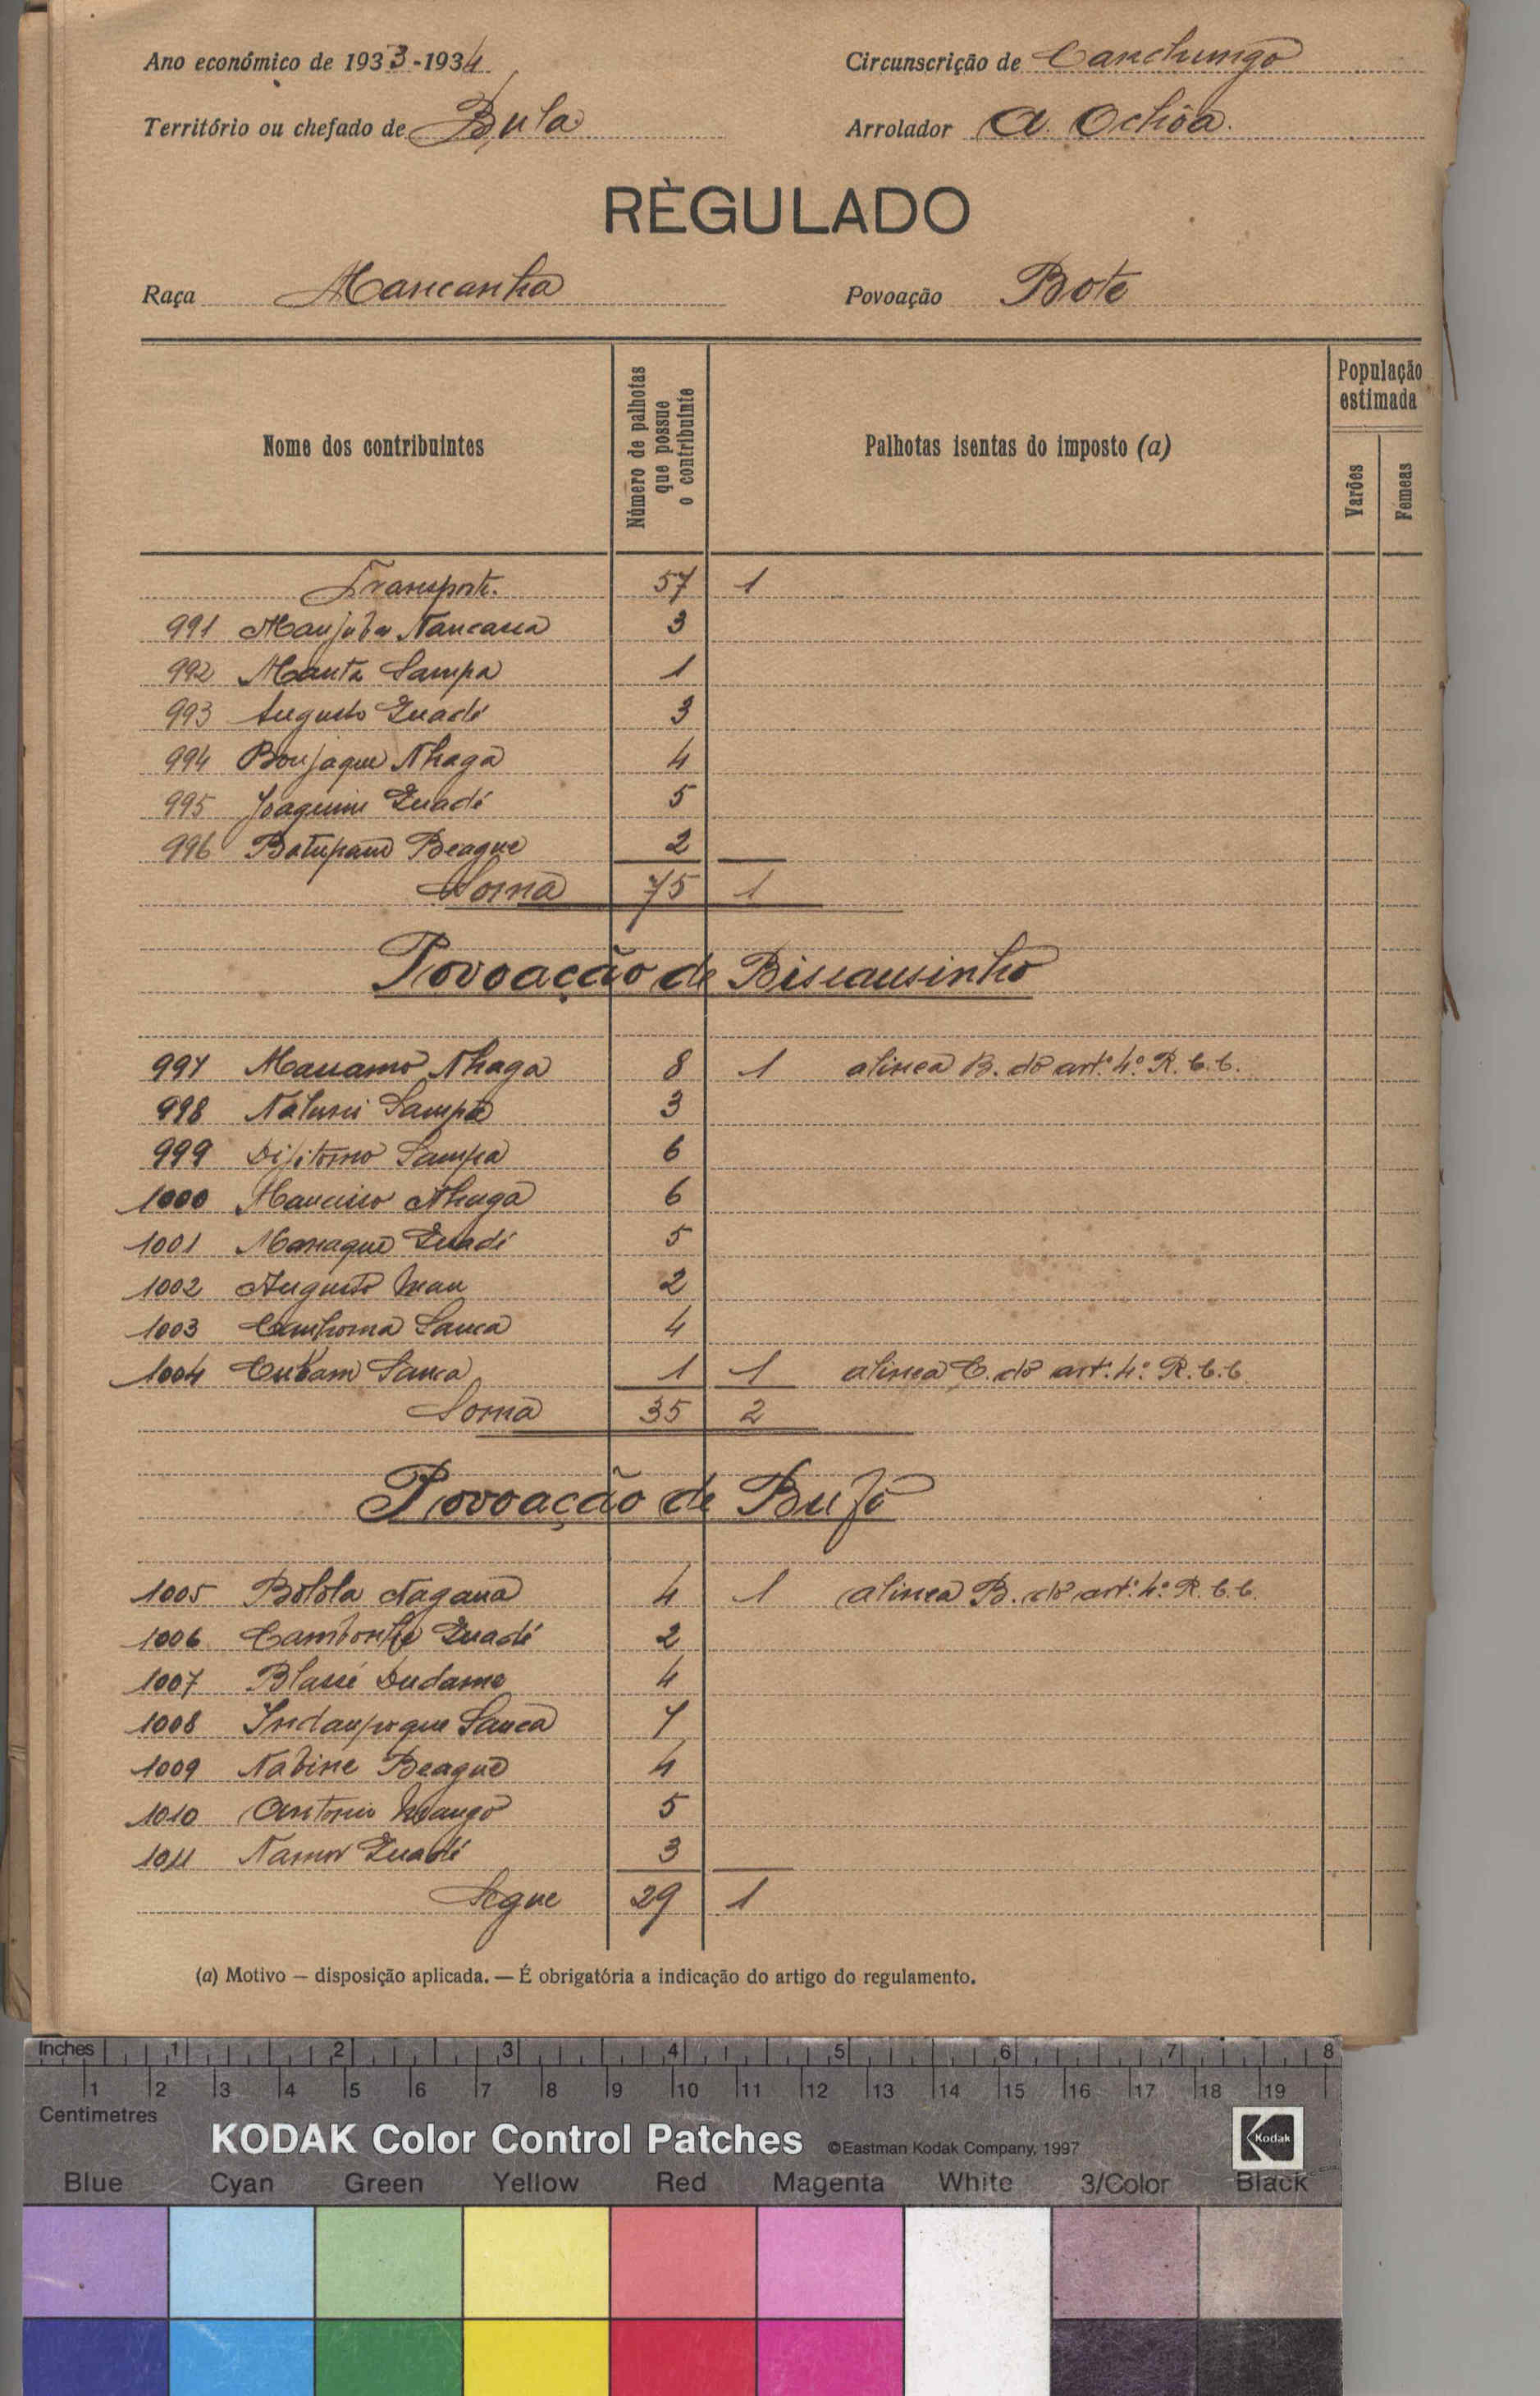 Ano económico de 1933-1934 Circunscrição de Canchungo
Território ou chefado de Bula Arrolador A. Ochôa.
RÈGULADO
Raça Mancanha Povoação Bote
Nome dos contribuintes
Número de palhotas que possue o contribuinte
Palhotas isentas do imposto (a)
População estimada
Varões
Fêmeas
Transporte. 57 1
991 3
992 Manta Sampa 1
993 Augusto Quadé 3
994 Nhaga 4
995 Joaquim Quadé 5
996 Batupam Beague 2
Soma 75 1
Povoação de
997 Nhaga 8 1 alinea B. do artº 4º R. C. C.
998 Sampa 3
999 Sampa 6
1000 Nhaga 6
1001 Quadé 5
1002 Augusto 2
1003 Sanca 4
1004 Cubam Sanca 1 1 alinea C. do artº 4º R. C. C.
Soma 35 2
Povoação de
1005 Bolola Nagana 4 1 alinea B. do artº 4º R. C. C.
1006 Quadé 2
1007 4
1008 Sanca 7
1009 Nabine Beague 4
1010 Antonio 5
1011 Quadé 3
Segue 29 1
(a) Motivo — disposição aplicada. — É obrigatória a indicação do artigo do regulamento.
Inches 1 2 3 4 5 6 7 8
1 2 3 4 5 6 7 8 9 10 11 12 13 14 15 16 17 18 19
Centimetres
KODAK Color Control Patches ©Eastman Kodak Company, 1997 Kodak
Blue Cyan Green Yellow Red Magenta White 3/Color Black